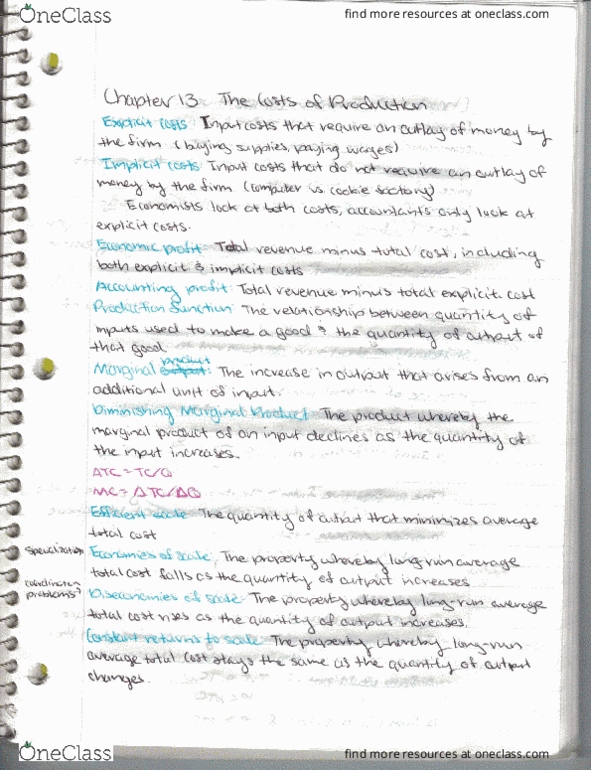 OneClass
find more resources at oneclass.com
Chapter 13 The Costs of Production
Explicit costs: Input costs that require an outlay of money by
the firm (buying supplies, paying wages)
Implicit costs: Input costs that do not require an outlay of
money by the firm (computer vs. cookie factory)
Economists look at both costs, accountants only look at
explicit costs.
Economic profit: Total revenue minus total cost, including
both explicit & implicit costs
Accounting profit: Total revenue minus total explicit cost
Production function: The relationship between quantity of
inputs used to make a good & the quantity of output of
that good
product
Marginal output: The increase in output that arises from an
additional unit of input.
Diminishing Marginal Product: The product whereby the
marginal product of an input declines as the quantity of
the input increases.
ATC = TC/Q
MC = ΔTC/ΔQ
Efficient scale: The quantity of output that minimizes average
total cost
specialization Economies of scale: The property whereby long-run average
total cost falls as the quantity of output increases
coordination problems Diseconomies of scale: The property whereby long-run average
total cost rises as the quantity of output increases.
Constant returns to scale: The property whereby long-run
average total cost stays the same as the quantity of output
changes.
OneClass
find more resources at oneclass.com